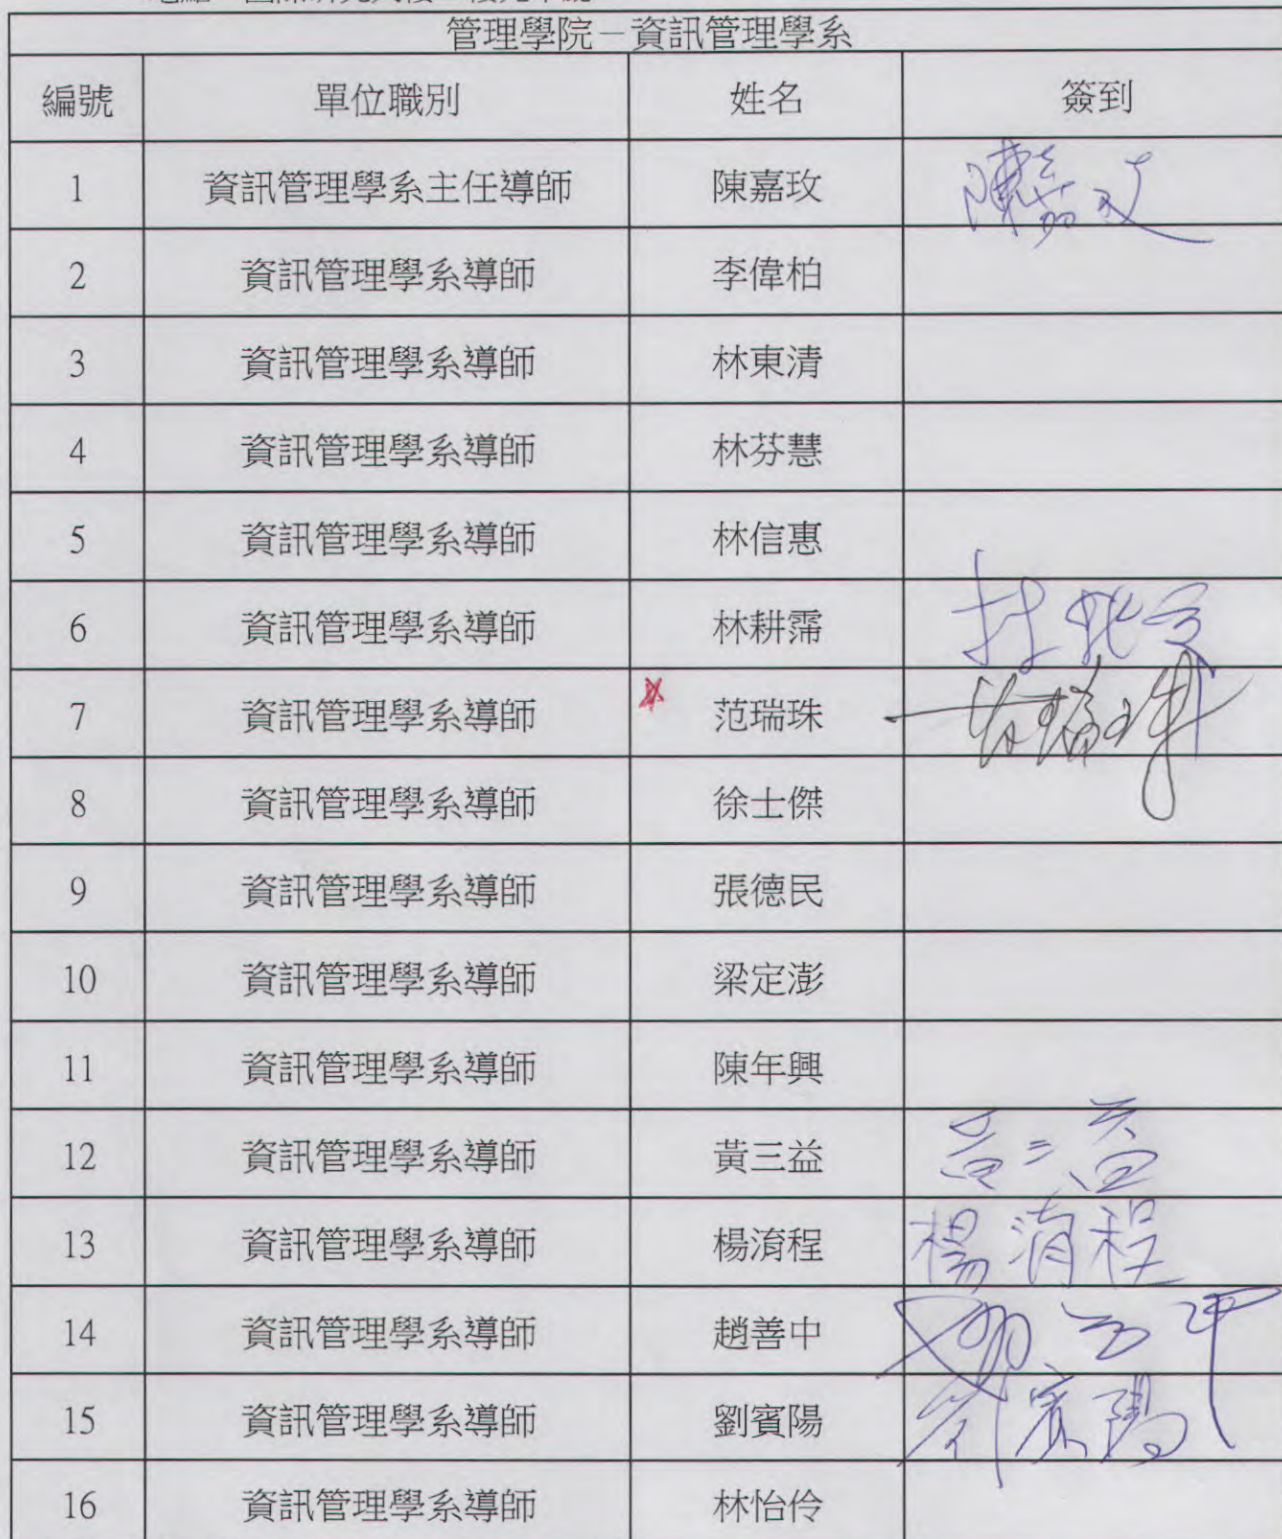 管理學院－資訊管理學系
編號 單位職別 姓名 簽到
1 資訊管理學系主任導師 陳嘉玫 陳嘉玫
2 資訊管理學系導師 李偉柏
3 資訊管理學系導師 林東清
4 資訊管理學系導師 林芬慧
5 資訊管理學系導師 林信惠
6 資訊管理學系導師 林耕霈
7 資訊管理學系導師 范瑞珠 范瑞珠
8 資訊管理學系導師 徐士傑
9 資訊管理學系導師 張德民
10 資訊管理學系導師 梁定澎
11 資訊管理學系導師 陳年興
12 資訊管理學系導師 黃三益 黃三益
13 資訊管理學系導師 楊淯程 楊淯程
14 資訊管理學系導師 趙善中 趙善中
15 資訊管理學系導師 劉賓陽 劉賓陽
16 資訊管理學系導師 林怡伶